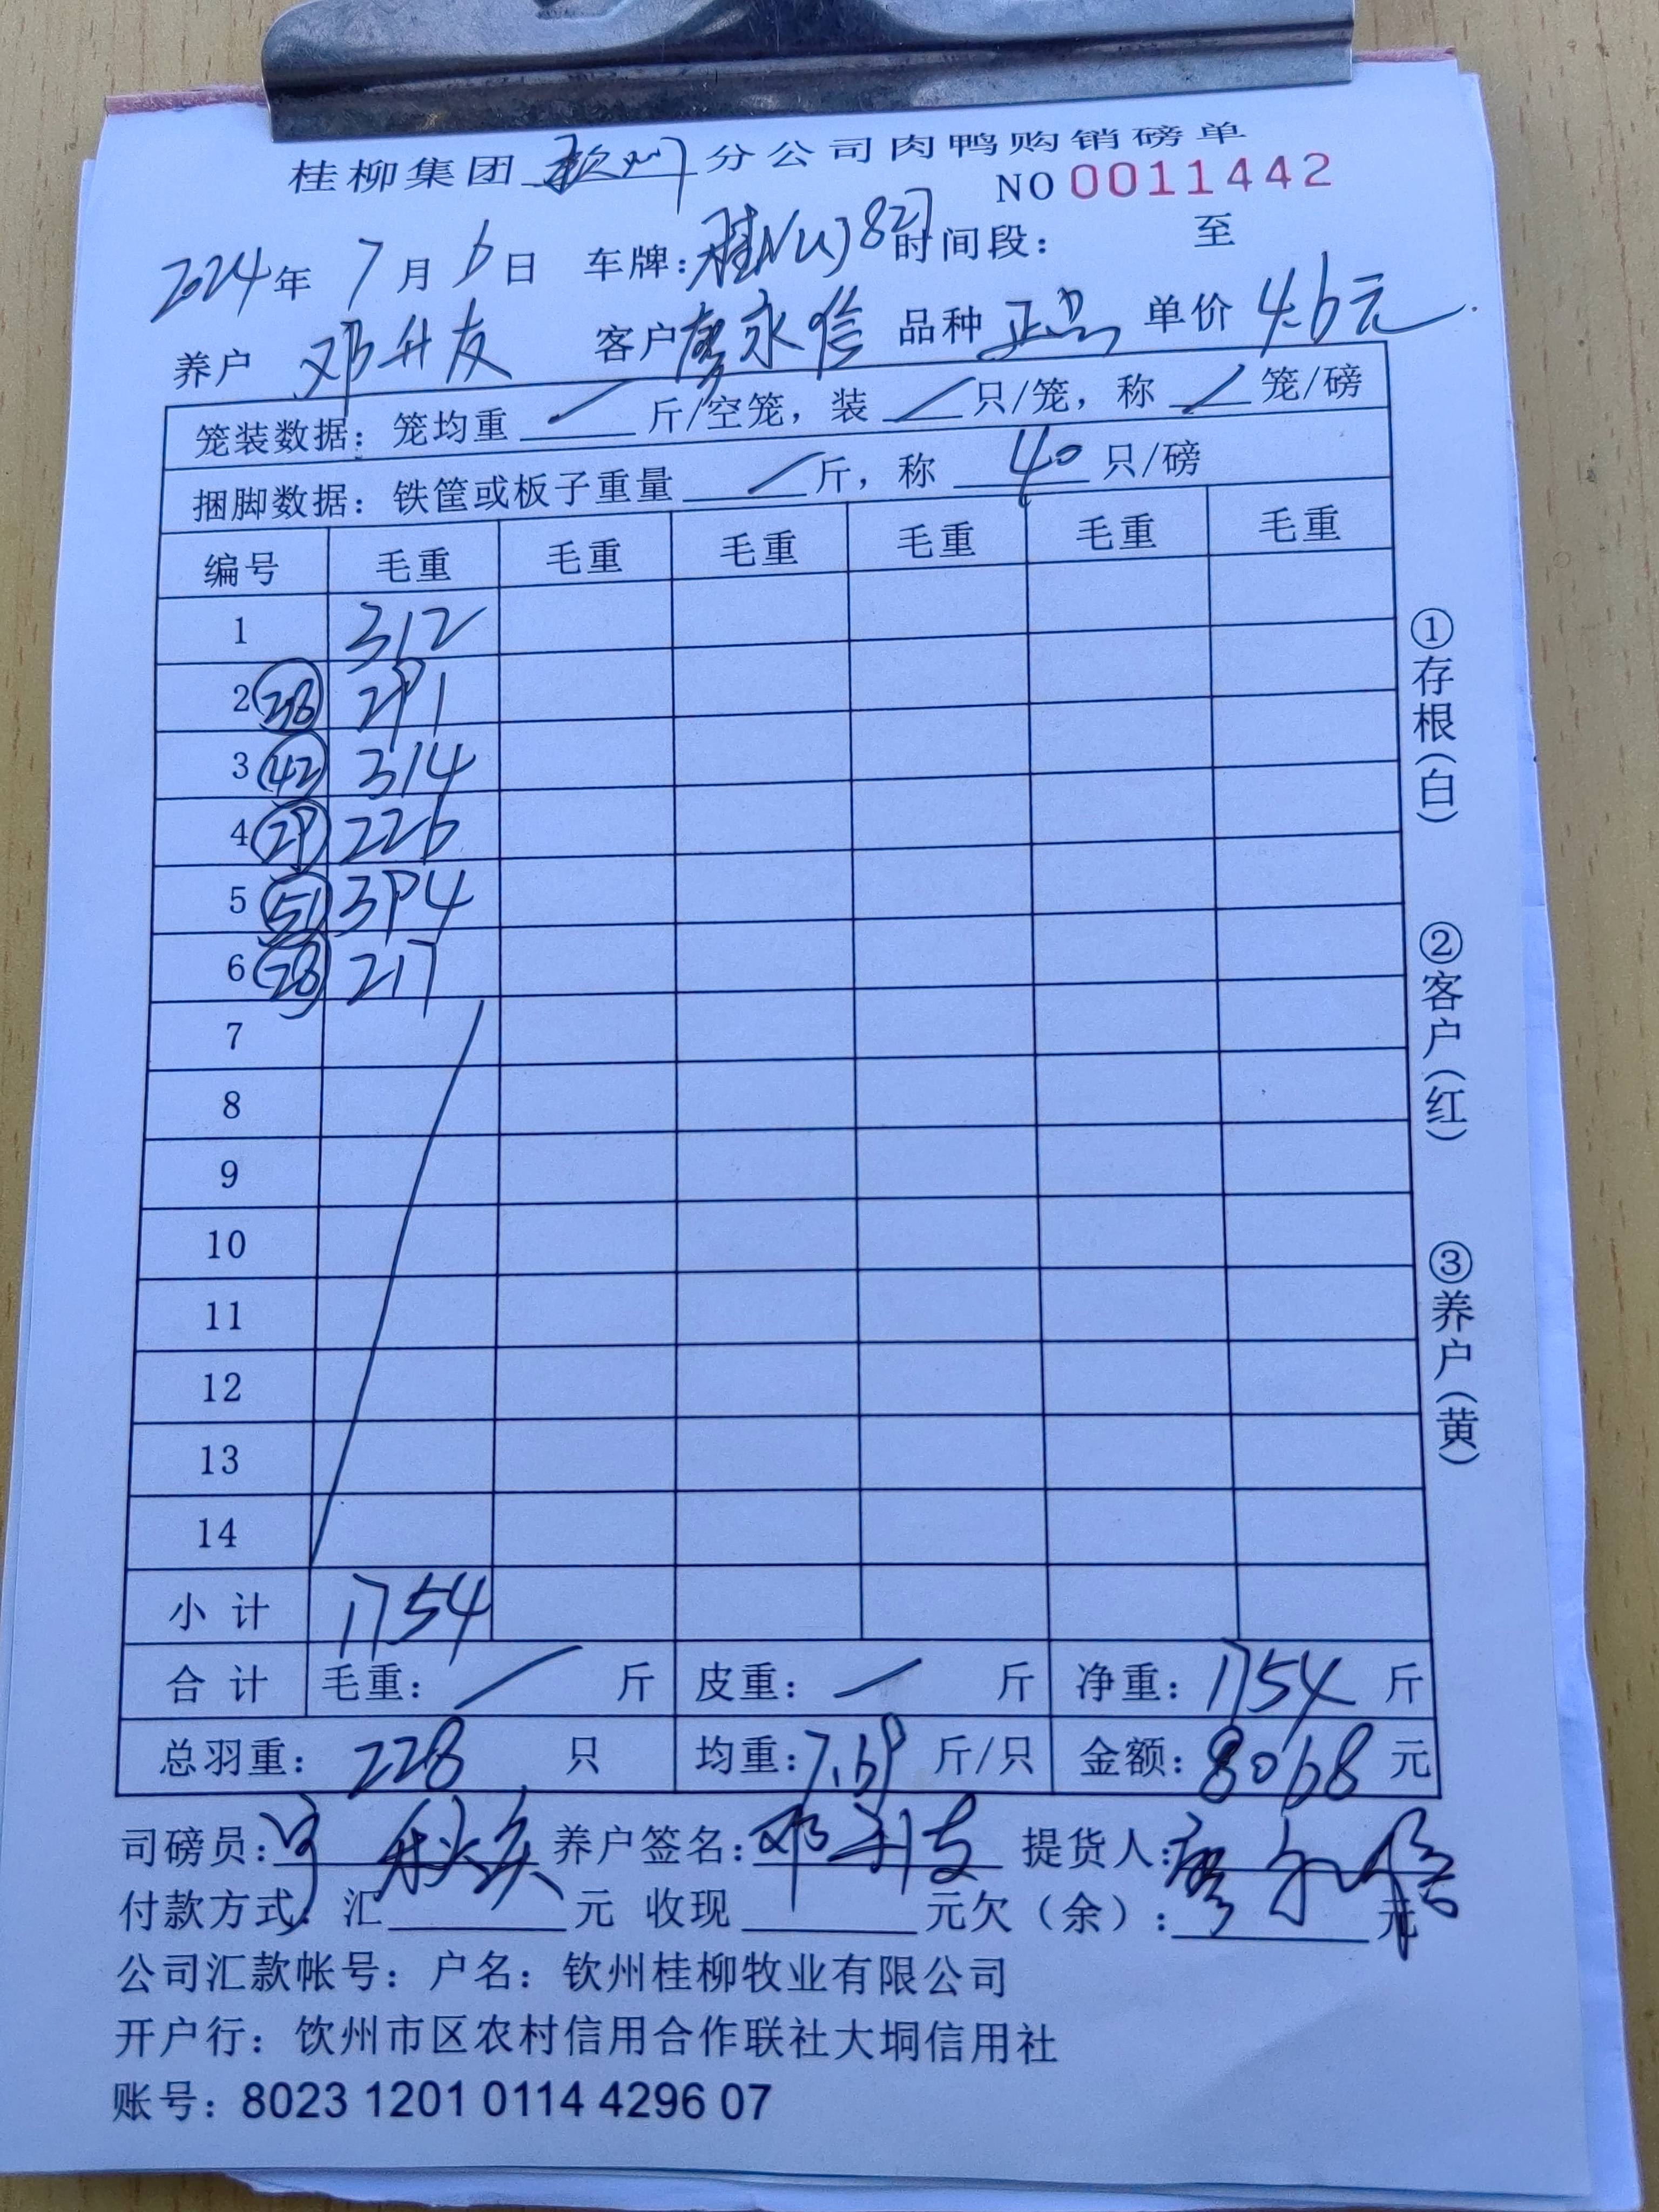 桂柳集团 钦州 分公司肉鸭购销磅单
NO 0011442
2024年 7月 6日 车牌: 时间段: 至
养户 邓升友 客户 廖永信 品种 正品 单价 4.6元
笼装数据: 笼均重 / 斤/空笼, 装 / 只/笼, 称 / 笼/磅
捆脚数据: 铁筐或板子重量 / 斤, 称 40 只/磅
编号 毛重 毛重 毛重 毛重 毛重 毛重
1 312
2 (38) 291
3 (42) 314
4 (29) 226
5 (51) 394
6 (28) 217
7
8
9
10
11
12
13
14
小计 1754
合计 毛重: / 斤 皮重: / 斤 净重: 1754 斤
总羽重: 228 只 均重: 7.69 斤/只 金额: 8068 元
司磅员: 养户签名: 邓升友 提货人: 廖永信
付款方式: 汇 元 收现 元欠(余): 元
公司汇款帐号: 户名: 钦州桂柳牧业有限公司
开户行: 饮州市区农村信用合作联社大垌信用社
账号: 8023 1201 0114 4296 07
①存根(白)
②客户(红)
③养户(黄)